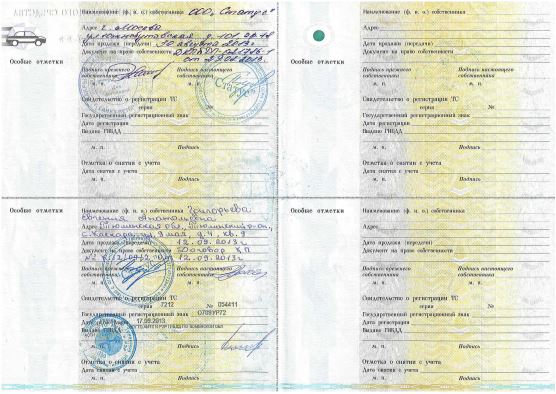 Особые отметки
Наименование (ф. и. о.) собственника ООО "Статус"
Адрес г. Москва
Дата продажи (передачи) 30 августа 2013г.
Документ на право собственности
от 29.08.2013.
Подпись прежнего собственника
Подпись настоящего собственника
М. П.
М. П.
Статус
Свидетельство о регистрации ТС
серия №
Государственный регистрационный знак
Дата регистрации
Выдано ГИБДД
М. П. Подпись
Отметка о снятии с учета
Дата снятия с учета
М. П. Подпись
Особые отметки
Наименование (ф. и. о.) собственника
Адрес
Дата продажи (передачи)
Документ на право собственности
Подпись прежнего собственника
Подпись настоящего собственника
М. П.
М. П.
Свидетельство о регистрации ТС
серия №
Государственный регистрационный знак
Дата регистрации
Выдано ГИБДД
М. П. Подпись
Отметка о снятии с учета
Дата снятия с учета
М. П. Подпись
Особые отметки
Наименование (ф. и. о.) собственника Григорьева
Евгения Анатольевна
Адрес Тюменская обл., Тюменский р-он,
с. Каскара, ул. 9 мая, д. 4, кв. 9
Дата продажи (передачи) 12.09.2013г.
Документ на право собственности Договор КП
от 12.09.2013г
Подпись прежнего собственника
Подпись настоящего собственника
М. П.
М. П.
Свидетельство о регистрации ТС
серия 7212 № 054411
Государственный регистрационный знак О789УР72
Дата регистрации 17.09.2013
Выдано ГИБДД
М. П. Подпись
Отметка о снятии с учета
Дата снятия с учета
М. П. Подпись
Особые отметки
Наименование (ф. и. о.) собственника
Адрес
Дата продажи (передачи)
Документ на право собственности
Подпись прежнего собственника
Подпись настоящего собственника
М. П.
М. П.
Свидетельство о регистрации ТС
серия №
Государственный регистрационный знак
Дата регистрации
Выдано ГИБДД
М. П. Подпись
Отметка о снятии с учета
Дата снятия с учета
М. П. Подпись